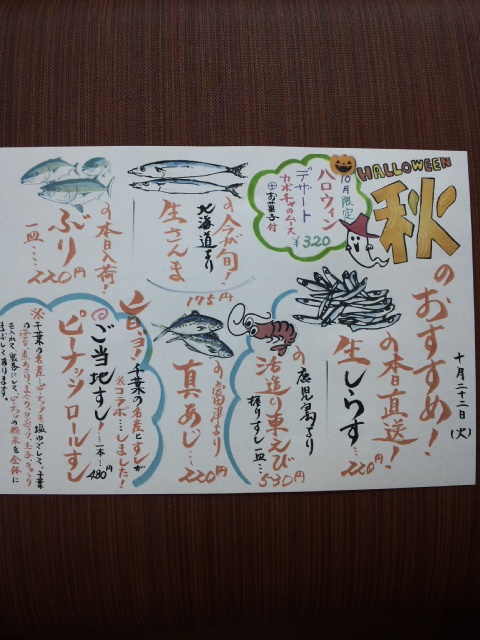 HALLOWEEN
秋
のおすすめ！
十月二十二日（火）
10月限定
ハロウィン
デザート
カボチャのムース
お菓子付
¥320
の本日直送！
生しらす
…220円
の鹿児島より
活造り車えび
握りすし一皿…530円
の今が旬！
北海道より
生さんま
195円
真あじ…
220円
の本日入荷！
ぶり
一皿…220円
旨いョ！
千葉の名産とすしが
※コラボ…しました！
ご当地すし！…一本…480円
ピーナッツロールすし
※千葉の名産